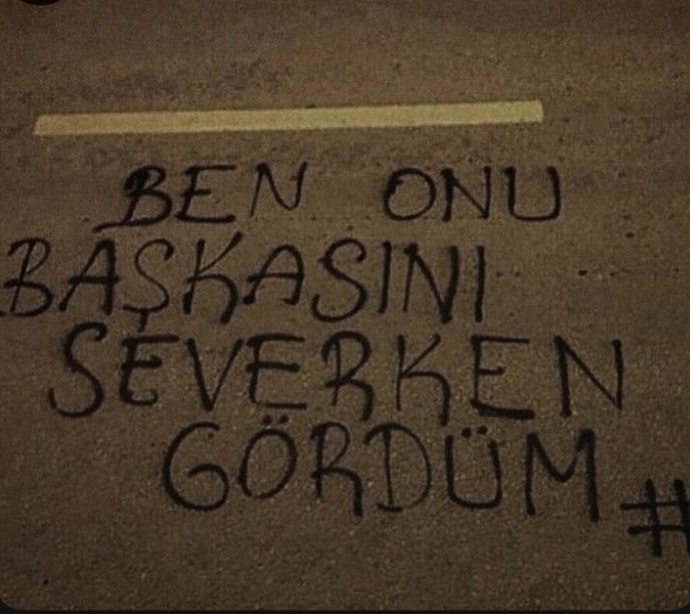 BEN ONU
BAŞKASINI
SEVERKEN
GÖRDÜM #